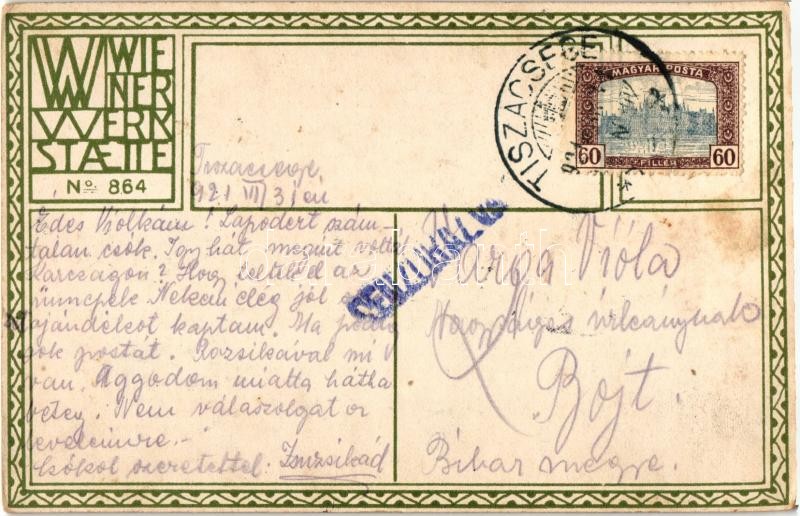 WIENER WERKSTÆTTE
No 864
MAGYAR POSTA
60 FILLÉR 60
TISZACSEGE
921
CENZURÁZVA
Tiszacsege,
921 III/31 én
Édes Violkám! Lapodért szám-
talan csók. Így hát megint voltál
Karcagon? Hogy teltek el az
ünnepek. Nekem elég jól
ajándékot kaptam. Ma
postát. Rozsikával mi
van. Aggodom miatta hátha
beteg. Nem válaszolgat
leveleimre.-
Csókol szeretettel: Zsuzsikád
Varga Viola
Nagyságos úrleánynak
Bojt.
Bihar megye.